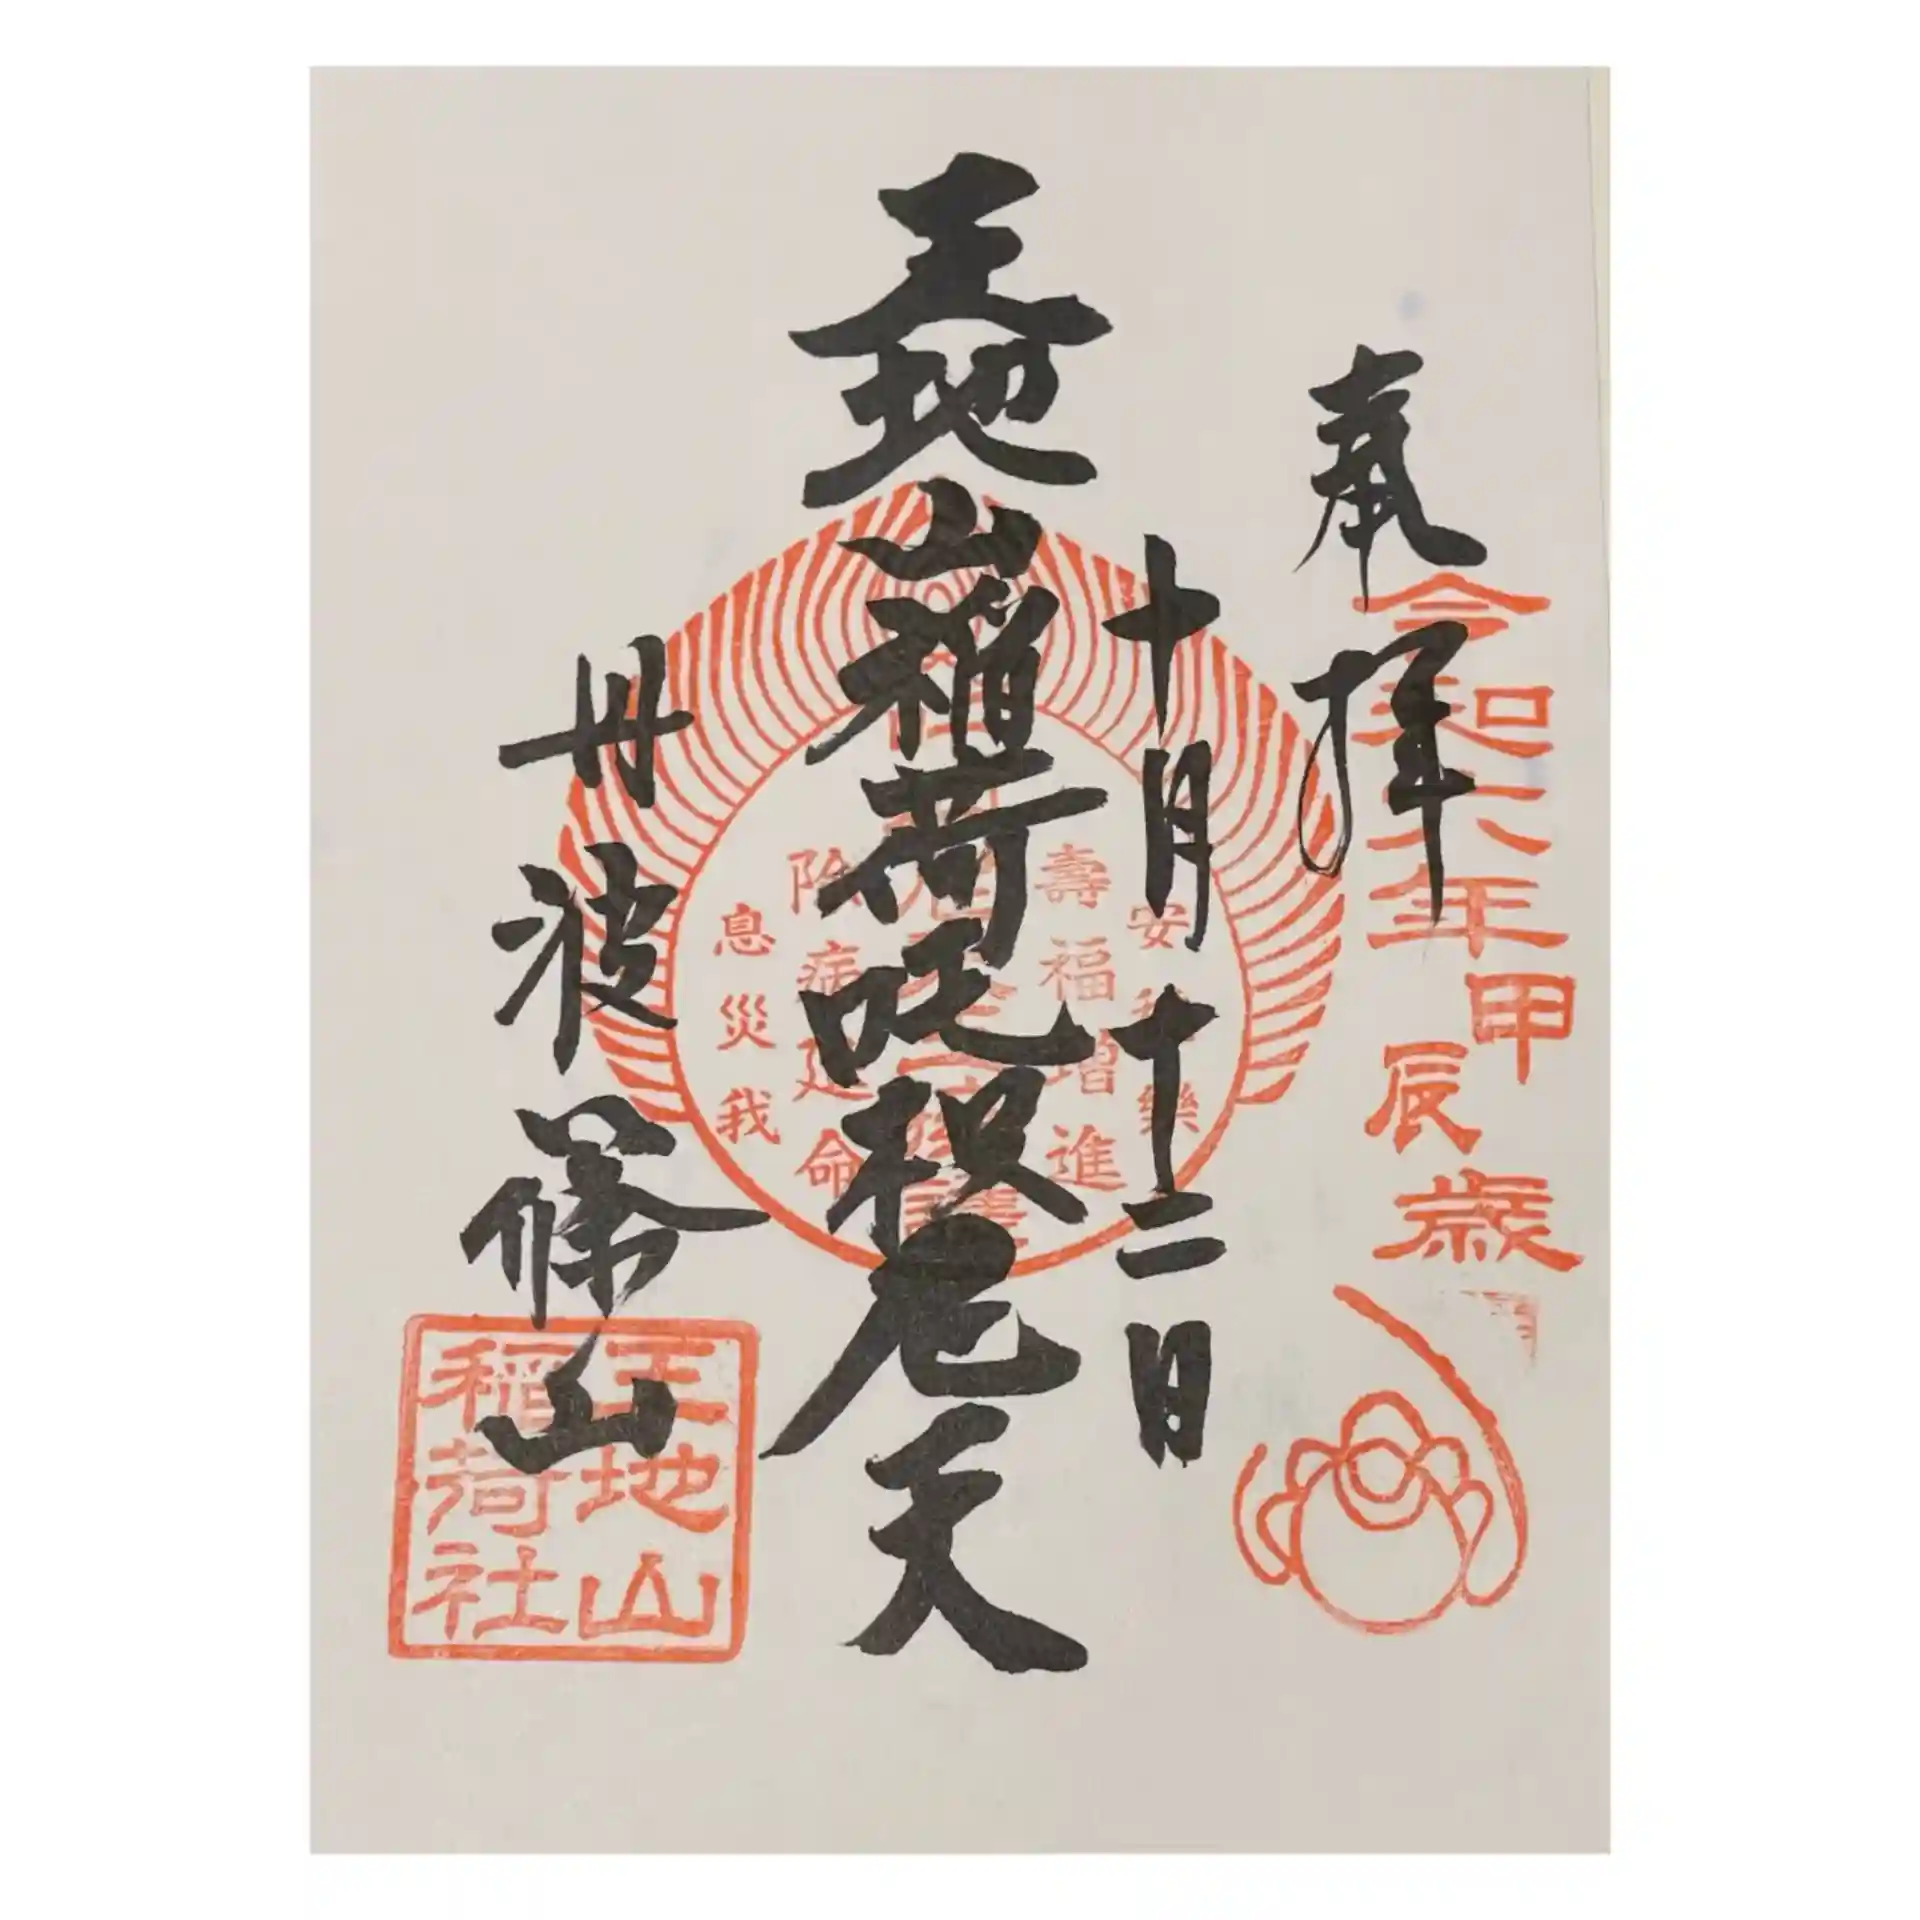 奉拝
令和六年甲辰歳
十月十二日
王地山稲荷吒枳尼天
安
樂
壽福增進
除病延命
息災我
丹波篠山
王地山
稲荷社